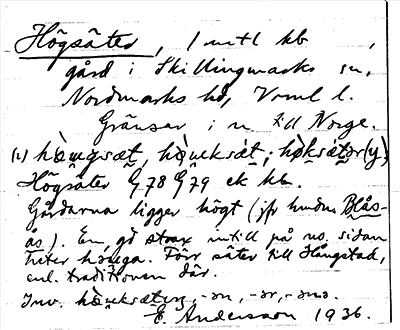 Högsäter, 1 mtl kb,
gård i Skillingmarks sn,
Nordmarks hd, Vrml l.
Gränsar i n till Norge.
(1) hòugsæt, hòuksæt; hòksætər(y)
Högsäter G78 G79 ek kb.
Gårdarna ligger högt (jfr hmdn Blås-
ås). En gd strax intill på no. sidan
heter hæuga. Förr säter till Haugstad,
enl. traditionen där.
Inv. hòuksætiŋ, -ən, -ər, -əna
E. Andersson 1936.